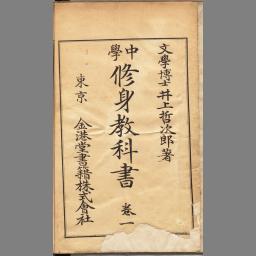 文學博士井上哲次郎著
中學修身教科書 卷一
東京 金港堂書籍株式會社